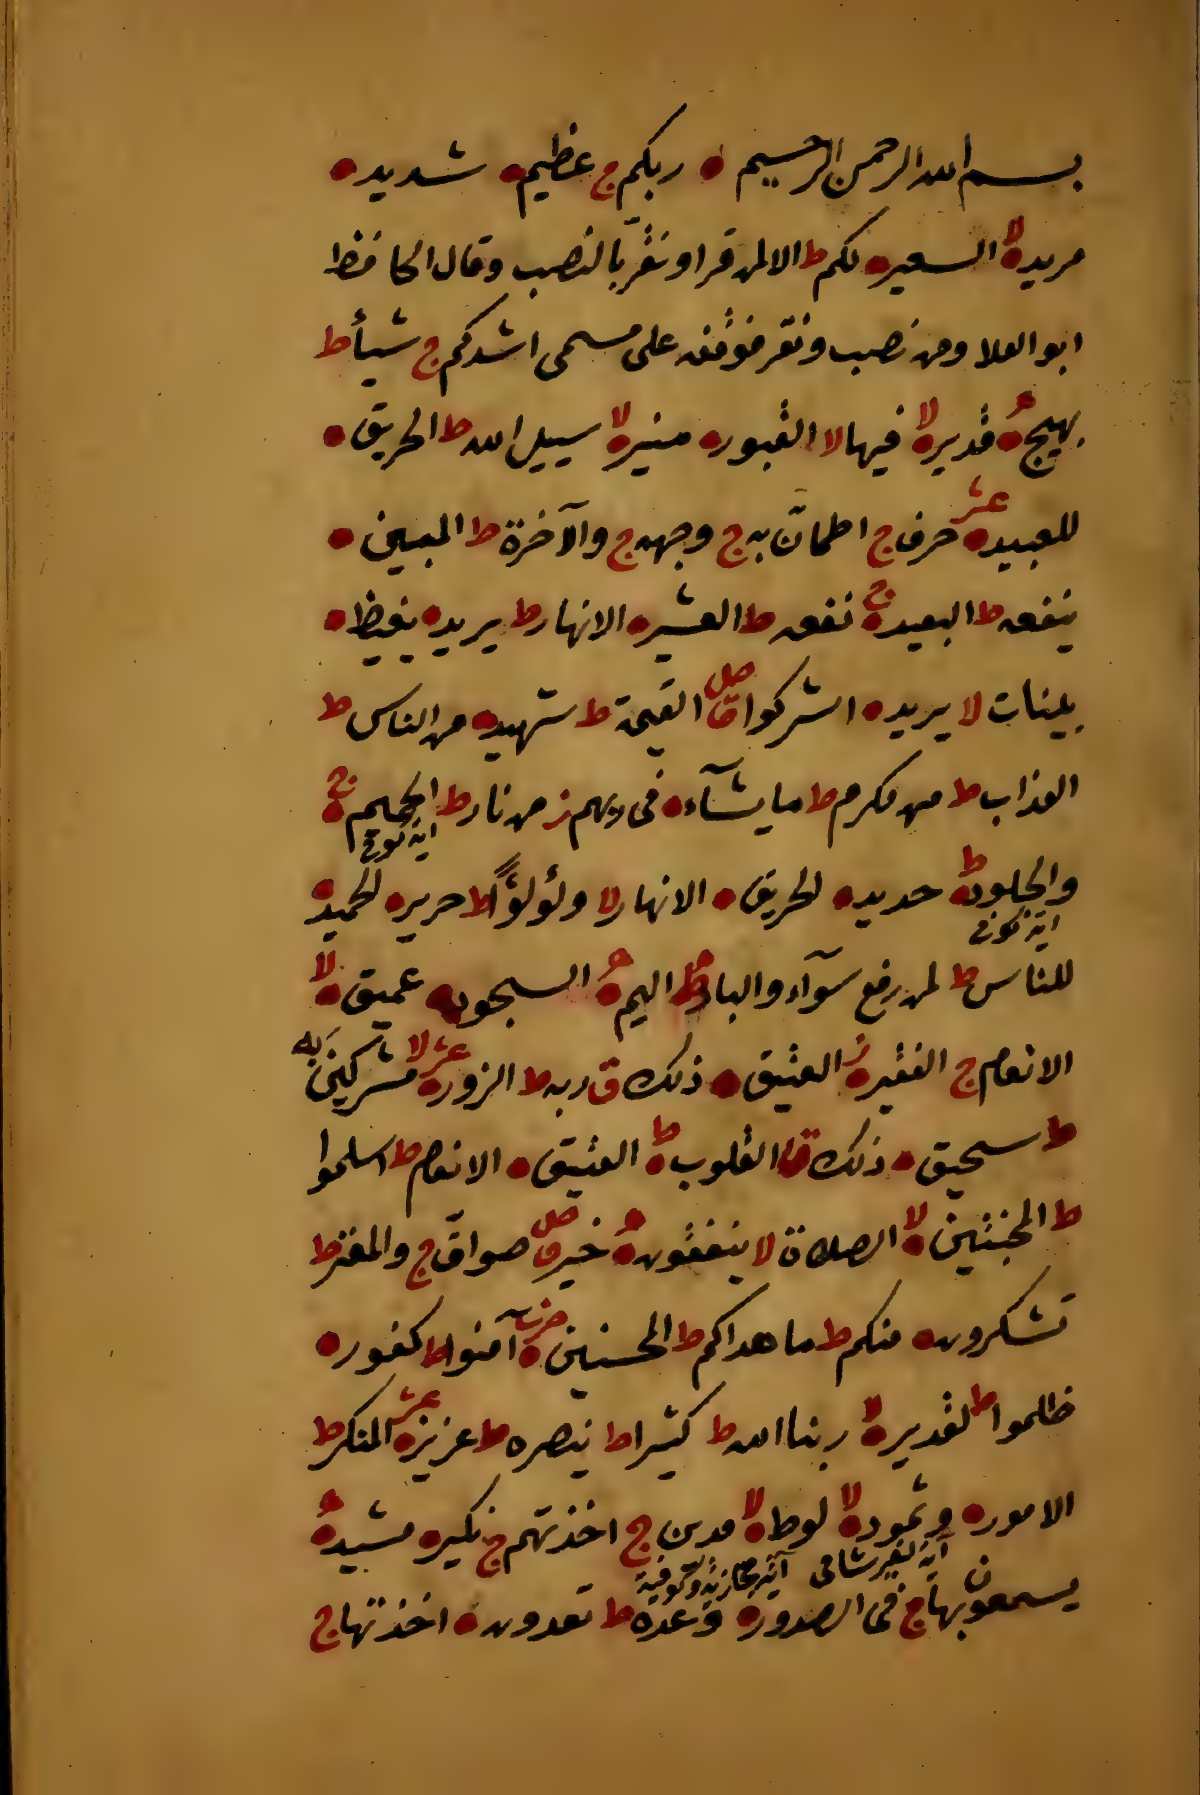 بسم الله الرحمن الرحيم ه ربكم ج عظيم ه شديد ه
مريد ه لا السعير ه لكم ط الا لمن قرا ونقرّ بالنصب وقال الحافظ
ابو العلا ومن نصب ونقر فوقفه على مسمى اشدكم ج شيأ ط
بهيج ه قدير ه لا فيها لا القبور ه منير ه لا سبيل الله ط الحريق ه
للعبيد ه عشر حرف ج اطمأنّ به ج وجهه ج والآخرة ط المبين ه
ينفعه ط البعيد ه ج نفعه ط العشير ه الانهار ط يريد ه يغيظ ه
بينات لا يريد ه اشركوا ق صل القيمة ط شهيد ه من الناس ط
العذاب ط من مكرم ط ما يشآء ه في ربهم ز من نار ط الحميم ه ج
اية كوفي
والجلود ه ط حديد ه الحريق ه الانهار لا ولؤلؤًا ط حرير ه الحميد ه
اية كوفي
للناس ط لمن رفع سوآء والباد ط اليم ه السجود ه عميق ه لا
الانعام ج الفقير ه ز العتيق ه ذلك ق ربه ط الزور ه عشر لا مشركين به
ط سحيق ه ذلك ق القلوب ه ط العتيق ه الانعام ط اسلموا
ط المخبتين ه لا الصلاة لا ينفقون ه خير ق صل صوافّ ج والمعتر ط
تشكرون ه منكم ط ما هداكم ط المحسنين ه حزب آمنوا ط كفور ه
ظلموا ط لقدير ه لا ربنا الله ط كثيرا ط ينصره ط عزيز ه عشر المنكر ط
الامور ه وثمود ه لا لوط ه لا مدين ج اخذتهم ج نكير ه مشيد ه
آية لغير شامي آية حجازية وكوفية
يسمعون بها ج في الصدور ه وعده ط تعدون ه اخذتها ج